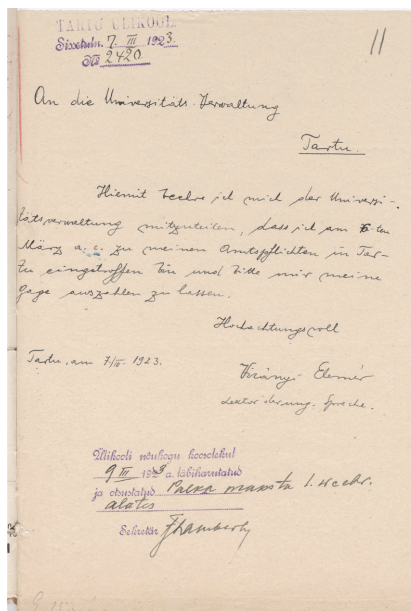 TARTU ÜLIKOOL
Sissetuln. 7. III 1923.
№ 2420
11
An die Universitäts-Verwaltung
Tartu.
Hiemit beehre ich mich der Universi-
tätsverwaltung mitzuteilen, dass ich am 6-ten
März a. c. zu meinen Amtspflichten in Tar-
tu eingetroffen bin und bitte mir meine
Gage auszahlen zu lassen.
Hochachtungsvoll
Tartu, am 7/III. 1923.
Virányi Elemér
Lektor der ung. Sprache.
Ülikooli nõukogu koosolekul
9 III 1923 a. läbiharutatud
ja otsustatud Palka maksta 1. veebr.
alates
Sekretär